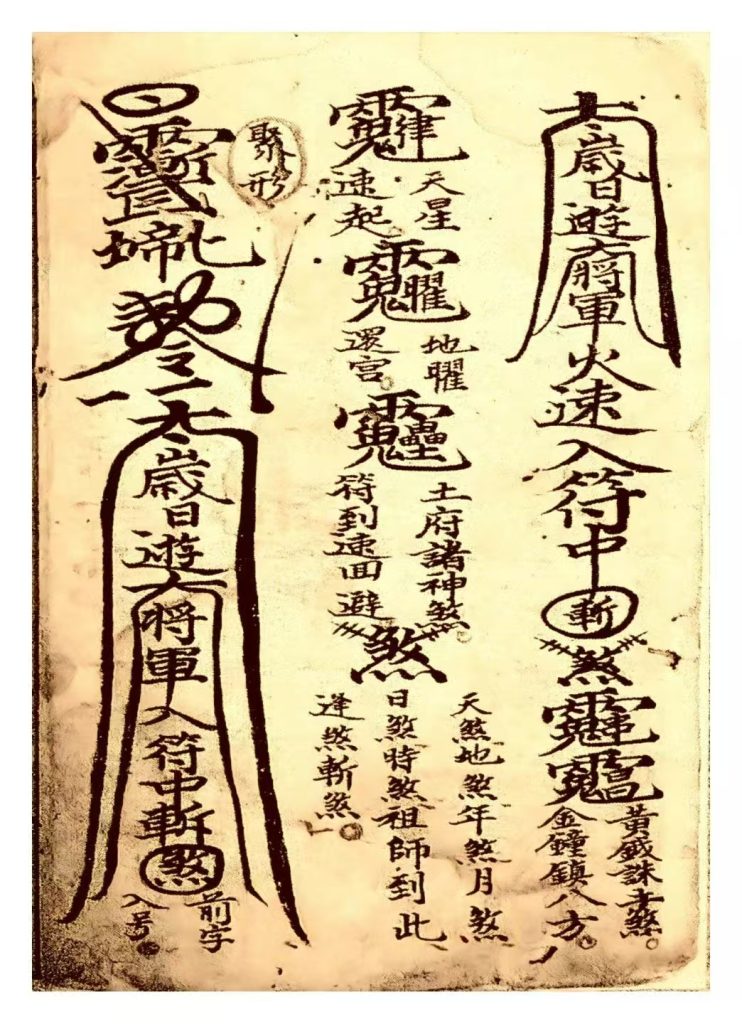 太歲日遊大將軍火速入符中斬煞
黃鉞誅土煞。
金鐘鎮八方。
天星
速起
地曜
還宮。
土府諸神煞。
符到速回避
煞
天煞地煞年煞月煞
日煞時煞祖師到此
逢煞斬煞。
聚形
令
太歲日遊大將軍入符中斬煞
前字
入号